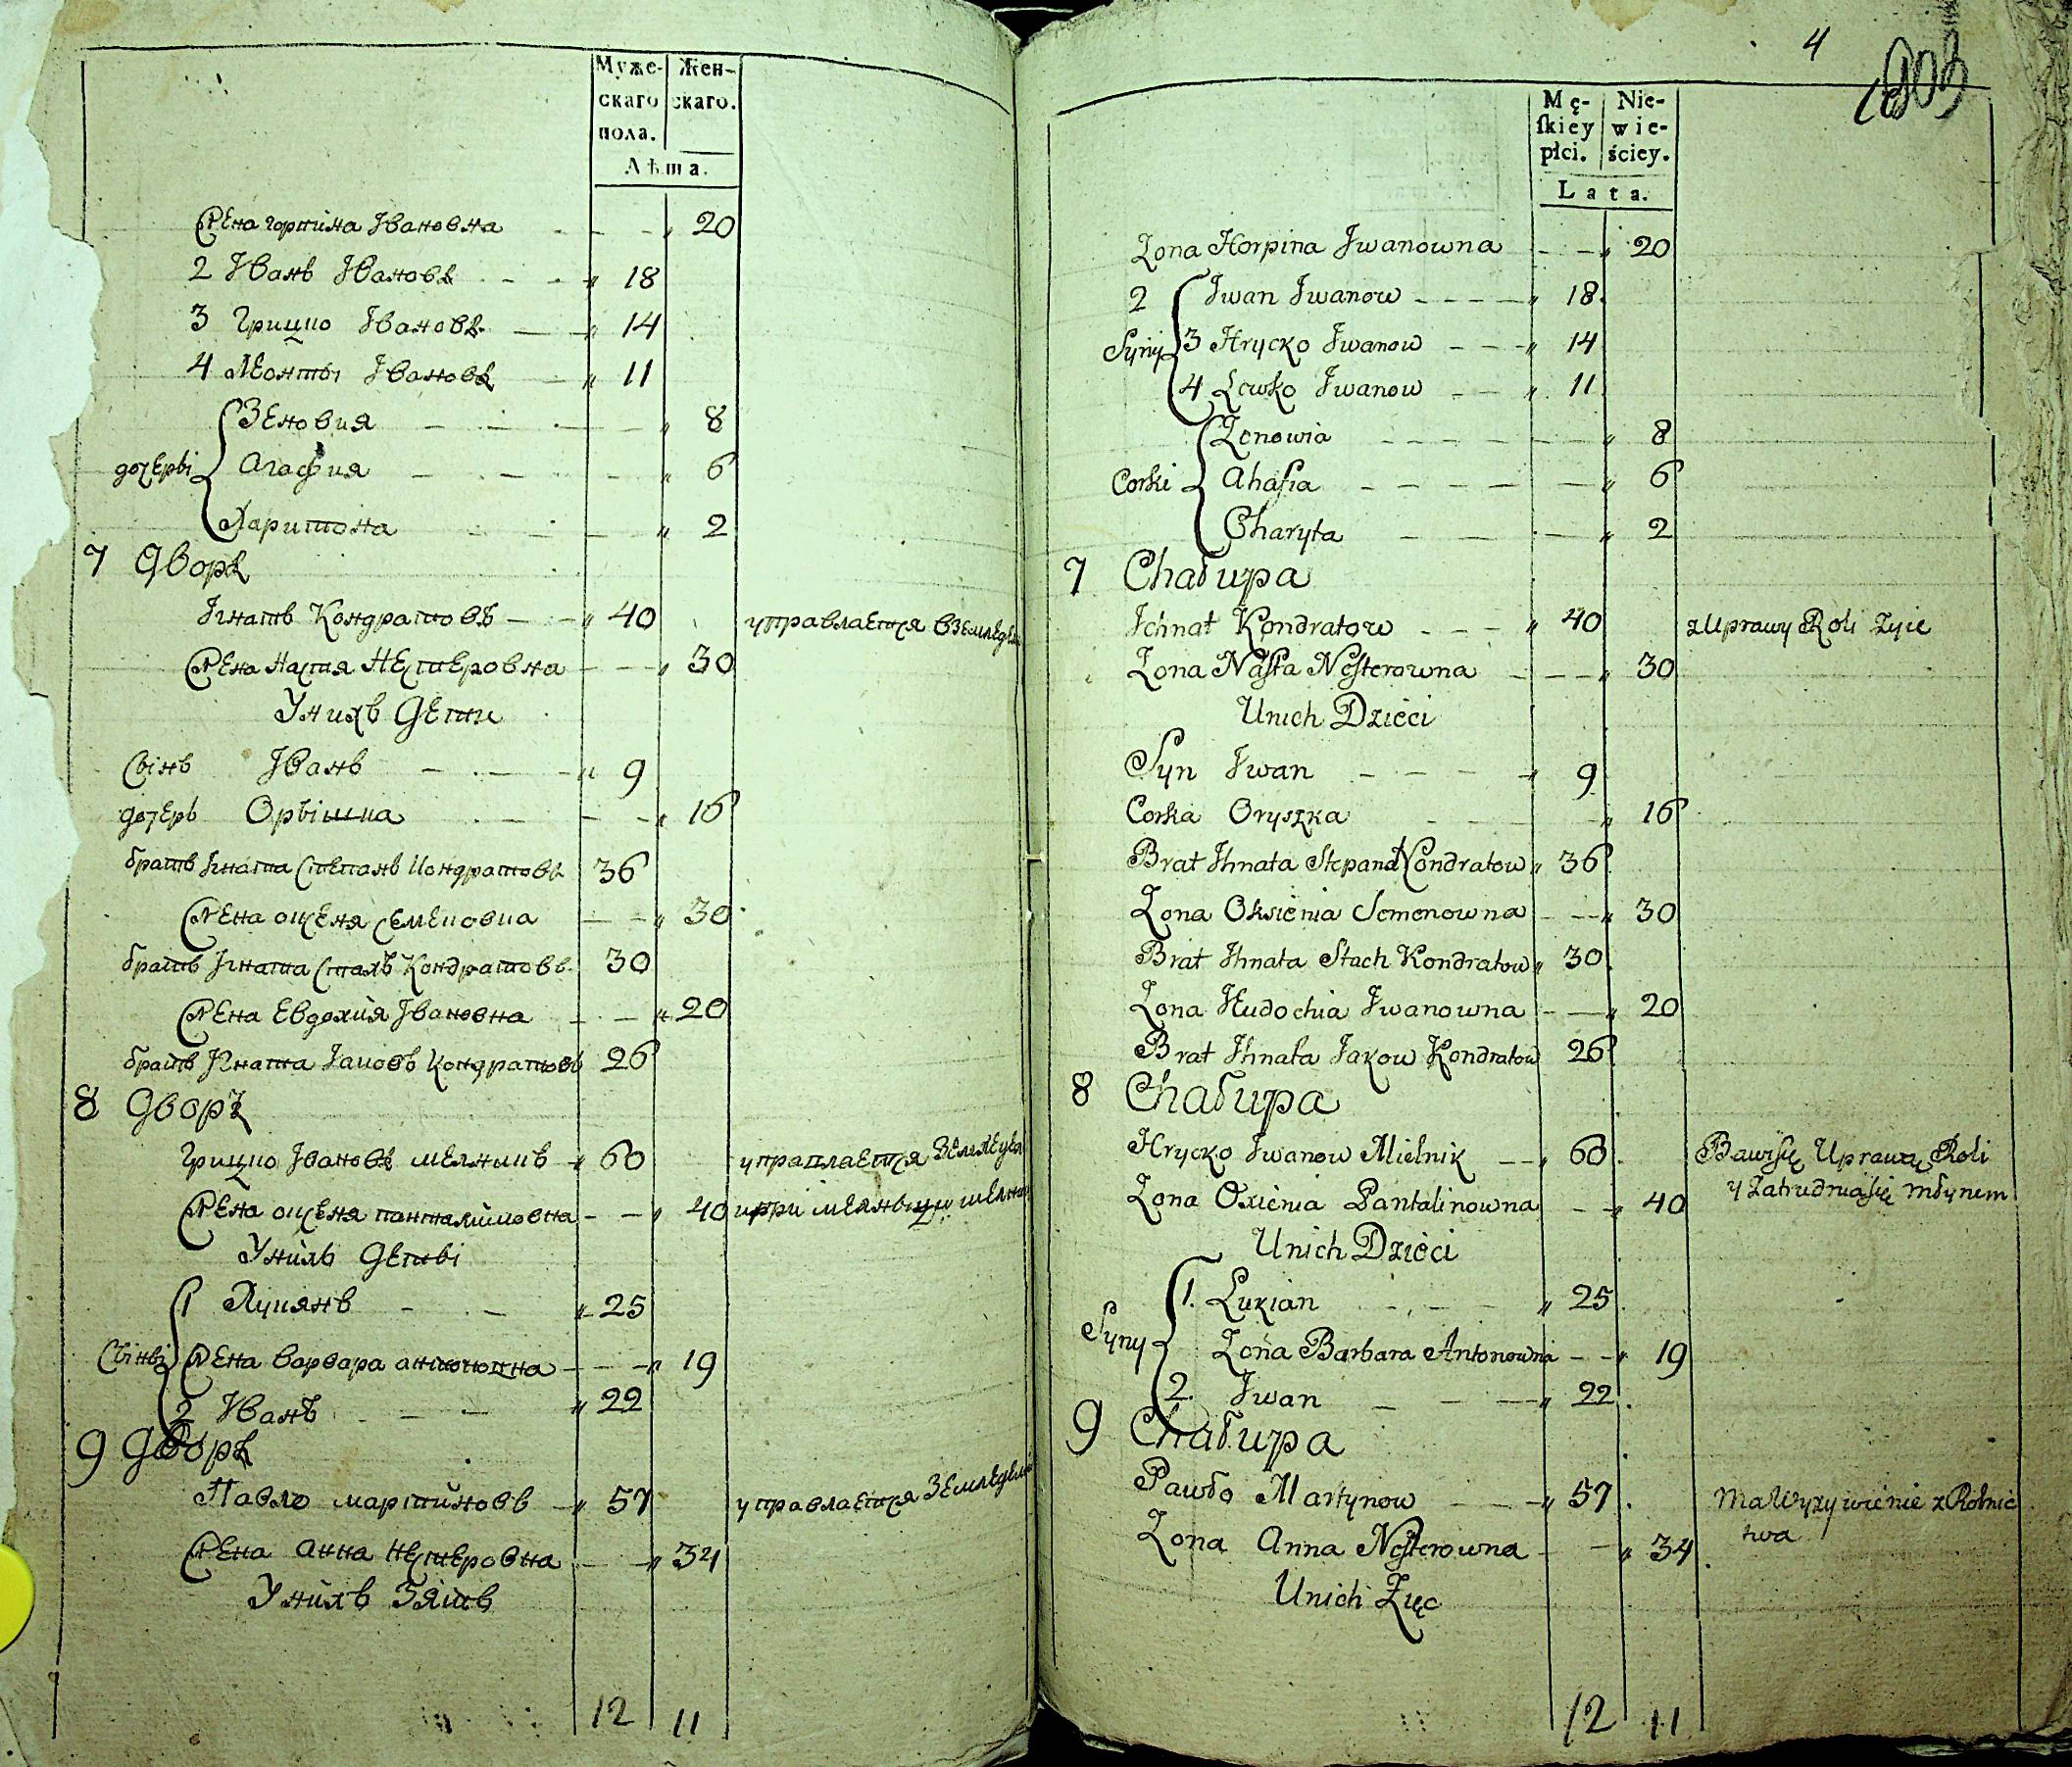 Муже-
скаго
пола.
Жен-
скаго.
Лѣта.
Жена горпина Ивановна - - „ 20
2 Иванъ Ивановъ - - „ 18
3 Грицко Ивановъ - - „ 14
4 Леонтьі Ивановъ - „ 11
Зеновия - - - - „ 8
дочері Агафия - - - „ 6
Харитона - - - „ 2
7 дворъ
Ігнатъ Кондратовъ - - „ 40 управлаетця вземлед
Жена Настя Нестеровна - - „ 30
Унихъ дети
Сынъ Иванъ - - - „ 9
дочерь Орышка - - - „ 16
братъ Игната Степанъ Кондратовъ 36
Жена оксеня семеновна - - „ 30
братъ Игната Стахъ Кондратовъ 30
Жена Евдохия Ивановна - - „ 20
братъ Игната Іаковъ Кондратовъ 26
8 дворъ
Грицко Ивановъ мелникъ „ 60 управлаетця
Жена оксеня панталимовна - - „ 40
Унихъ деты
1 Лукянъ - - „ 25
Сыны Жена варвара антоновна - - „ 19
2 Иванъ - - „ 22
9 дворъ
Павло мартиновъ „ 57 управлаетця
Жена анна нестеровна - - „ 34
Унихъ Зять
12 11
4
Mę-
ſkiey
płci.
Nie-
wie-
ściey.
Lata.
Zona Horpina Iwanowna - - „ 20
2 Iwan Iwanow - - - - „ 18
Syny 3 Hrycko Iwanow - - - „ 14
4 Lewko Iwanow - - „ 11
Zenowia - - - - - „ 8
Corki Ahafia - - - - - „ 6
Charyta - - - - „ 2
7 Chałupa
Ichnat Kondratow - - - „ 40 z Uprawy Roli Zyie
Zona Nasta Nesterowna - - - „ 30
Unich Dzieci
Syn Iwan - - - - „ 9
Corka Oryszka - - - „ 16
Brat Ihnata Stepan Kondratow „ 36
Zona Oksienia Semenowna - - - „ 30
Brat Ihnata Stach Kondratow „ 30
Zona Heudochia Iwanowna - - „ 20
Brat Ihnata Iakow Kondratow 26
8 Chałupa
Hrycko Iwanow Mielnik - - „ 60 Bawi się Uprawą Roli
Zona Oxienia Pantalinowna - - „ 40 y Zatrudnia się młynem
Unich Dzieci
1. Lukian - - - „ 25
Syny Zona Barbara Antonowna - - „ 19
2. Iwan - - - „ 22
9 Chałupa
Pawło Martynow - - „ 57 Ma Wyzywienie z Rolnic
Zona Anna Nesterowna - - „ 34 twa
Unich Zięc
12 11